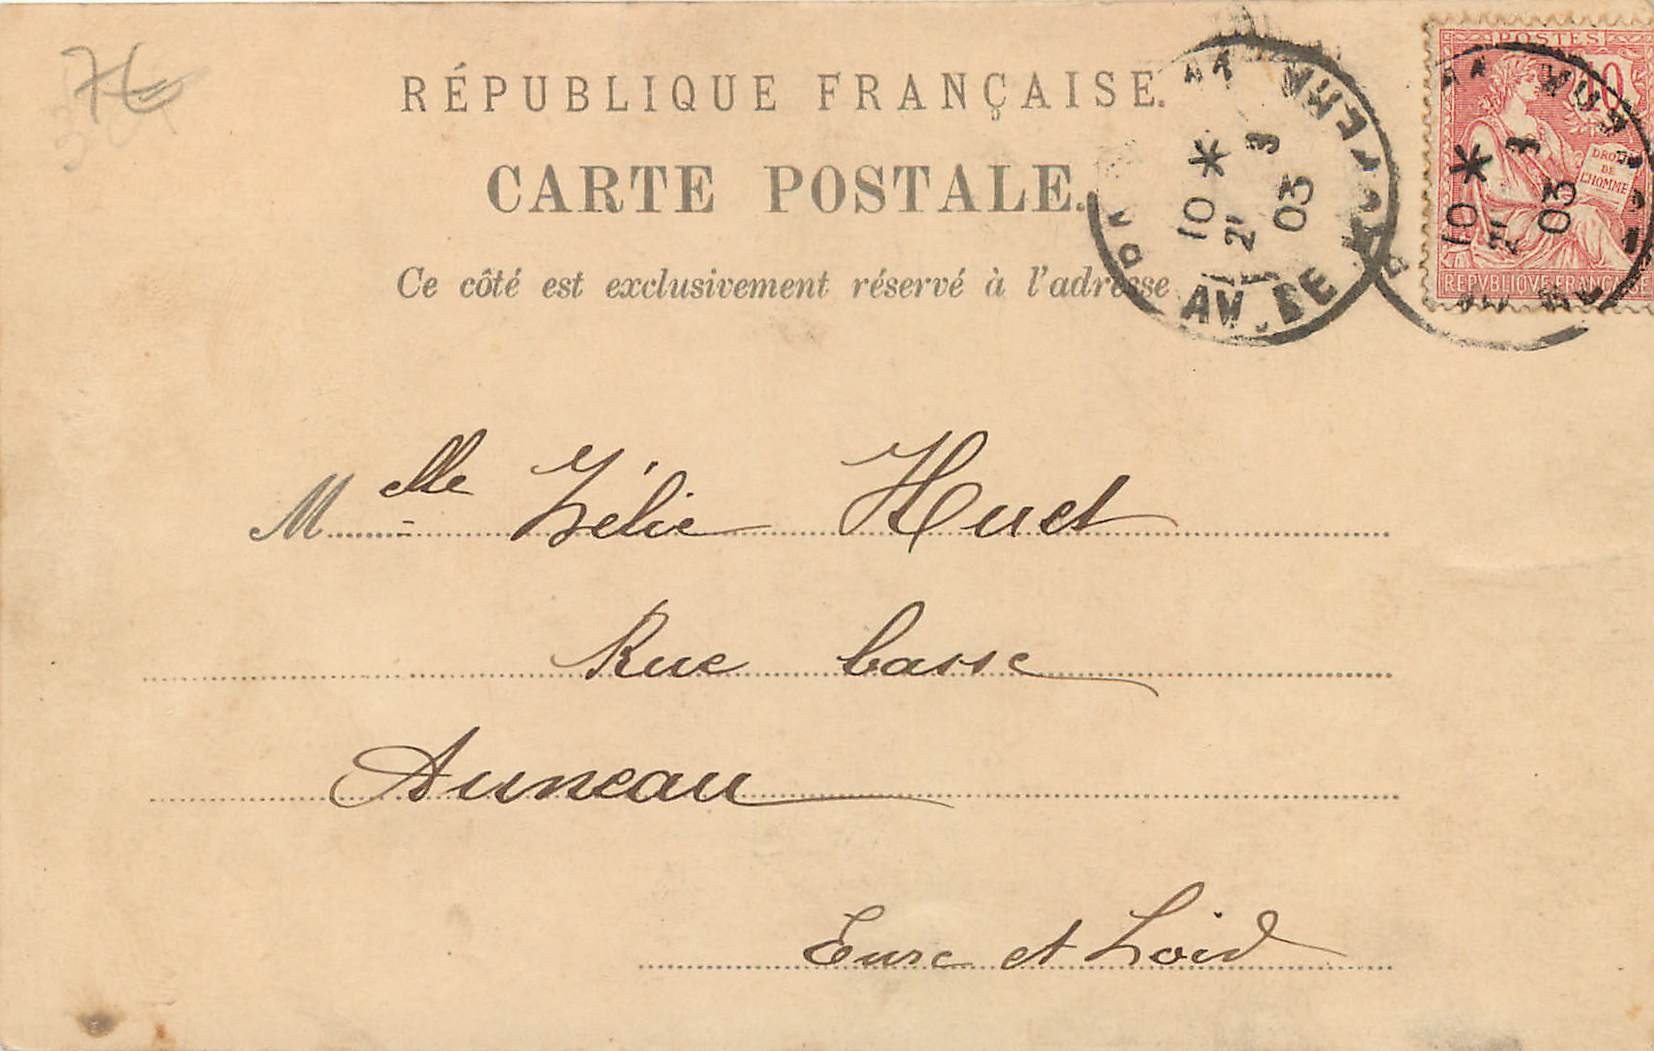 RÉPUBLIQUE FRANÇAISE.
CARTE POSTALE.
Ce côté est exclusivement réservé à l'adresse
POSTES
10
DROITS
DE
L'HOMME
REPVBLIQVE FRANÇAISE
10 *
21
3
03
AV. DE
10 *
21
3
03
Melle Zélie Huet
Rue basse
Auneau
Eure et Loir